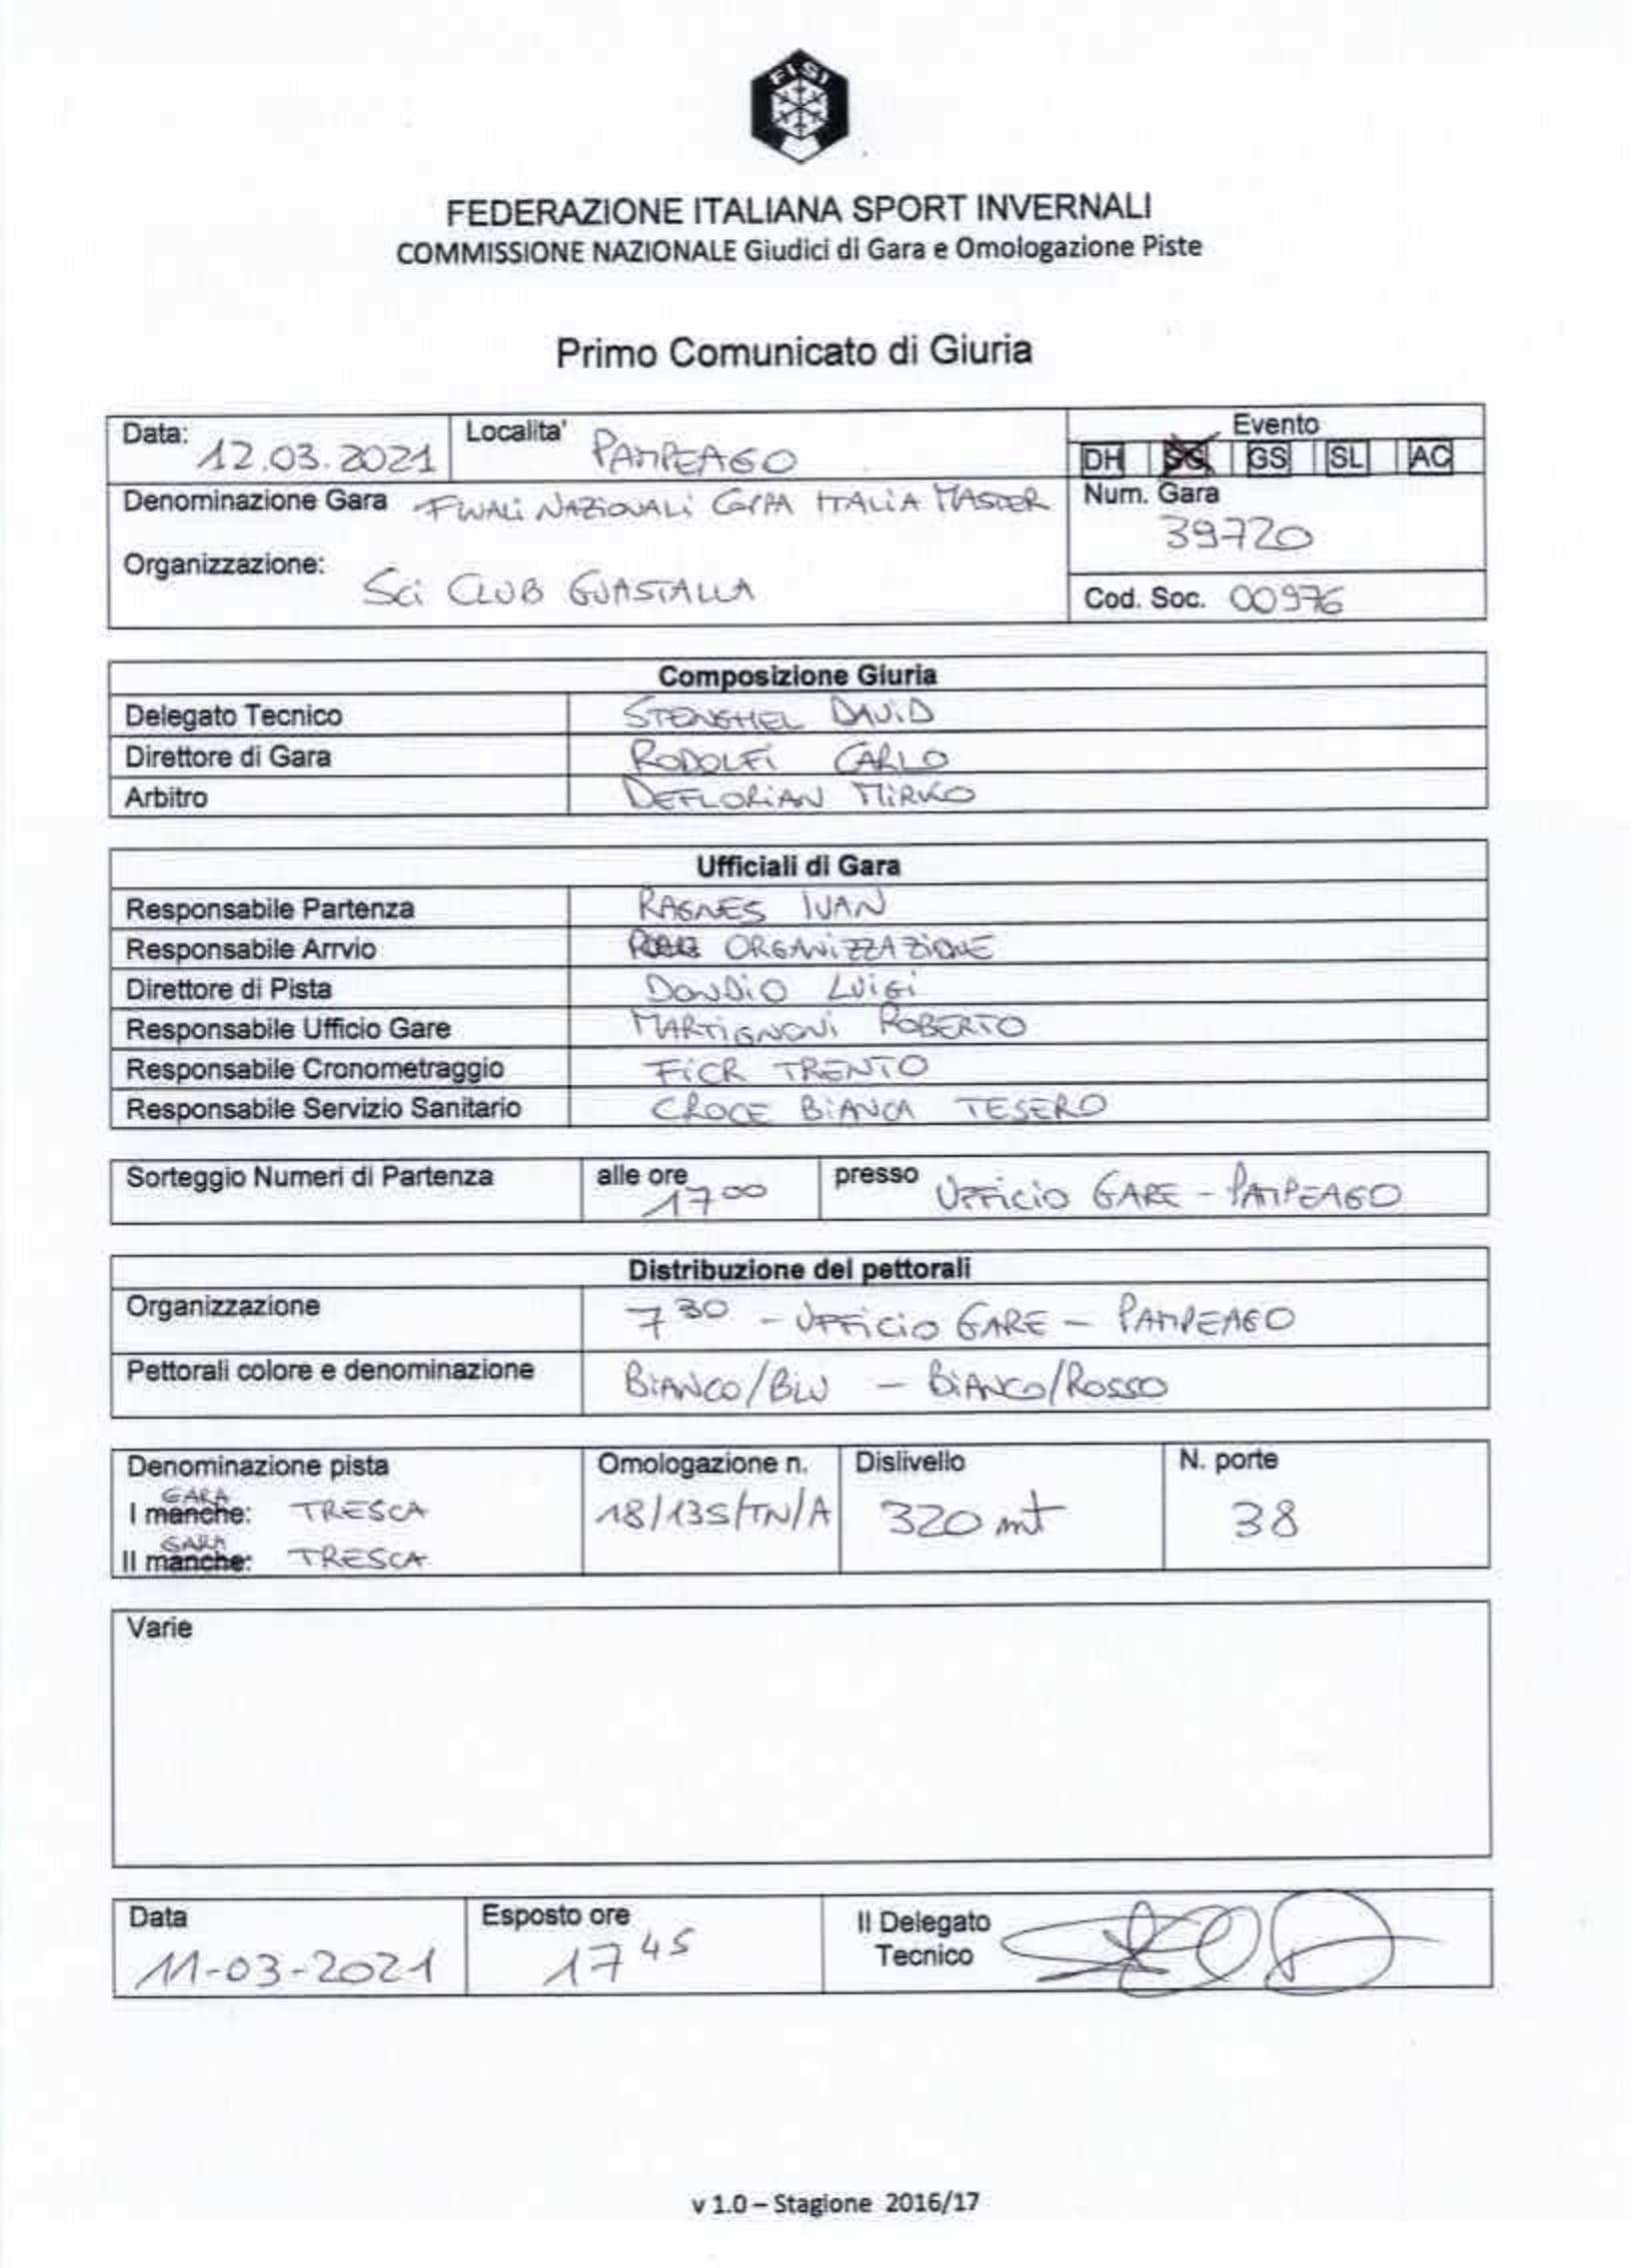 FISI
FEDERAZIONE ITALIANA SPORT INVERNALI
COMMISSIONE NAZIONALE Giudici di Gara e Omologazione Piste
Primo Comunicato di Giuria
Data: 12.03.2021 Localita' PAMPEAGO Evento
DH SG GS SL AC
Denominazione Gara FINALI NAZIONALI COPPA ITALIA MASTER Num. Gara
39720
Organizzazione: SCI CLUB GUASTALLA
Cod. Soc. 00976
Composizione Giuria
Delegato Tecnico STENGHEL DAVID
Direttore di Gara RODOLFI CARLO
Arbitro DEFLORIAN MIRKO
Ufficiali di Gara
Responsabile Partenza RAGNES IVAN
Responsabile Arrvio ORGANIZZAZIONE
Direttore di Pista DONDIO LUIGI
Responsabile Ufficio Gare MARTIGNONI ROBERTO
Responsabile Cronometraggio FICR TRENTO
Responsabile Servizio Sanitario CROCE BIANCA TESERO
Sorteggio Numeri di Partenza alle ore 17 00 presso UFFICIO GARE - PAMPEAGO
Distribuzione dei pettorali
Organizzazione 7 30 - UFFICIO GARE - PAMPEAGO
Pettorali colore e denominazione BIANCO/BLU - BIANCO/ROSSO
Denominazione pista Omologazione n. Dislivello N. porte
GARA
I manche: TRESCA 18/135/TN/A 320 mt 38
GARA
II manche: TRESCA
Varie
Data Esposto ore Il Delegato
Tecnico
11-03-2021 17 45
v 1.0 – Stagione 2016/17